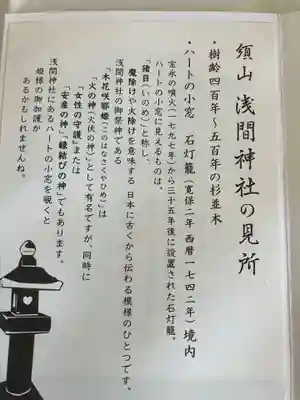 須山 浅間神社の見所
・樹齢四百年～五百年の杉並木
・ハートの小窓 石灯籠(寛保二年 西暦一七四二年)境内
宝永の噴火(一七九七年)から三十五年後に設置された石灯籠。
ハートの小窓に見えるものは、
「猪目(いのめ)」と称し、
魔除けや火除けを意味する 日本に古くから伝わる模様のひとつです。
浅間神社の御祭神である
「木花咲耶姫(このはなさくやひめ)」は
「火の神(火伏の神)」として有名ですが、同時に
「女性の守護」または
「安産の神」「縁結びの神」でもあります。
浅間神社にあるハートの小窓を覗くと
姫様の御加護が
あるかもしれませんね。